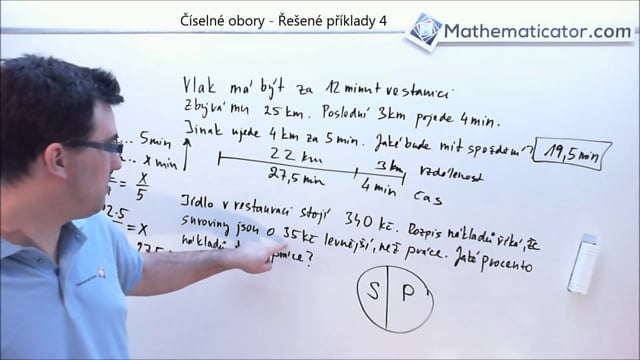 Číselné obory - Řešené příklady 4
Mathematicator.com
Vlak má být za 12 minut ve stanici
Zbývá mu 25 km. Poslední 3km pojede 4 min.
Jinak ujede 4 km za 5 min. Jaké bude mít zpoždění? 19,5 min
... 5 min
... x min
22 km 3 km vzdálenost
27,5 min 4 min čas
= x/5
·5 = x
Jídlo v restauraci stojí 340 kč. Rozpis nákladů říká, že
suroviny jsou o 35 kč levnější, než práce. Jaké procento
nákladů práce?
S P